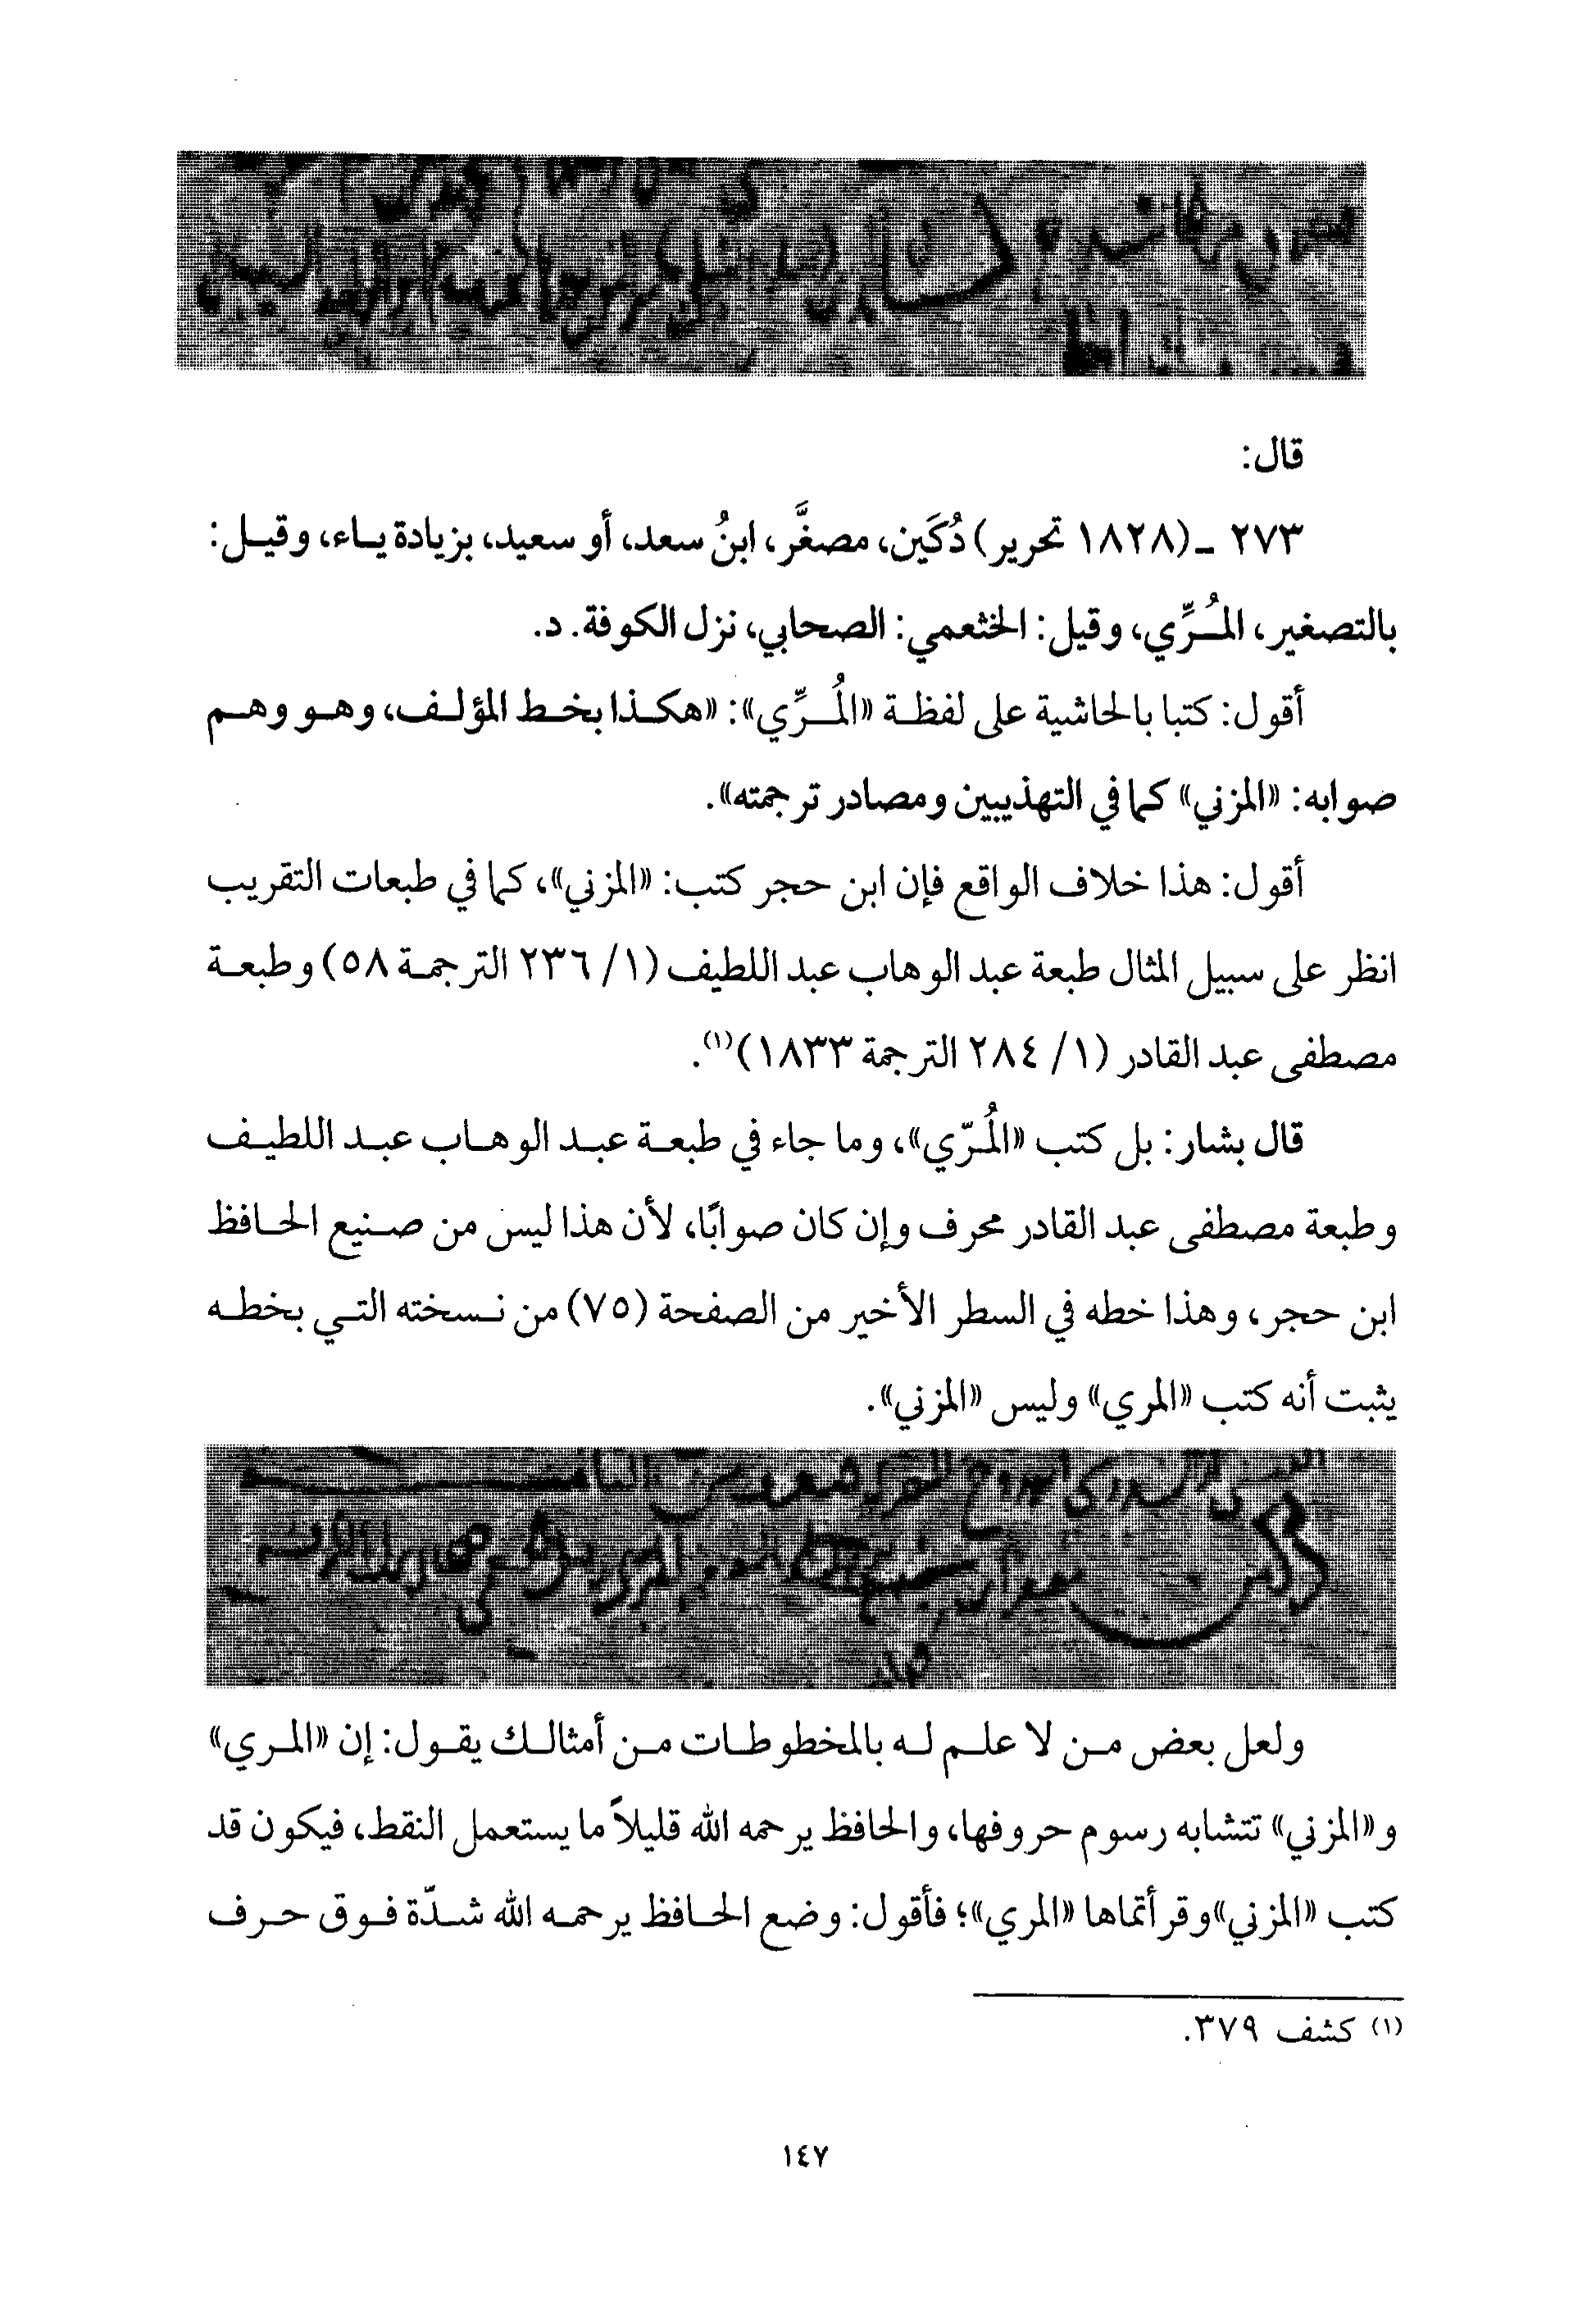 قال:
٢٧٣ - (١٨٢٨ تحرير) دُكَين، مصغَّر، ابنُ سعد، أو سعيد، بزيادة ياء، وقيل:
بالتصغير، المُرِّي، وقيل: الخثعمي: الصحابي، نزل الكوفة. د.
أقول: كتبا بالحاشية على لفظة «المُرِّي»: «هكذا بخط المؤلف، وهو وهم
صوابه: «المزني» كما في التهذيبين ومصادر ترجمته».
أقول: هذا خلاف الواقع فإن ابن حجر كتب: «المزني»، كما في طبعات التقريب
انظر على سبيل المثال طبعة عبد الوهاب عبد اللطيف (١/ ٢٣٦ الترجمة ٥٨) وطبعة
مصطفى عبد القادر (١/ ٢٨٤ الترجمة ١٨٣٣)(١).
قال بشار: بل كتب «المُرّي»، وما جاء في طبعة عبد الوهاب عبد اللطيف
وطبعة مصطفى عبد القادر محرف وإن كان صوابًا، لأن هذا ليس من صنيع الحافظ
ابن حجر، وهذا خطه في السطر الأخير من الصفحة (٧٥) من نسخته التي بخطه
يثبت أنه كتب «المري» وليس «المزني».
ولعل بعض من لا علم له بالمخطوطات من أمثالك يقول: إن «المري»
و«المزني» تتشابه رسوم حروفها، والحافظ يرحمه الله قليلاً ما يستعمل النقط، فيكون قد
كتب «المزني» وقرأتماها «المري»؛ فأقول: وضع الحافظ يرحمه الله شدّة فوق حرف
(١) كشف ٣٧٩.
١٤٧